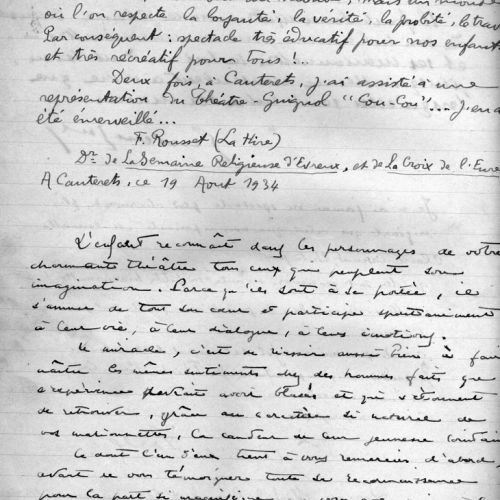 où l'on respecte la loyauté, la vérité, la probité, le trav
Par conséquent : spectacle très éducatif pour nos enfant
et très récréatif pour tous !...
Deux fois, à Cauterets, j'ai assisté à une
représentation du Théâtre-Guignol "Cou-Cou"... j'en a
été émerveillé...
F. Rousset (La Hire)
Dr. de La Semaine Religieuse d'Evreux, et de la Croix de l'Eure
A Cauterets, ce 19 Aout 1934
L'enfant reconnaît dans les personnages de votre
charmant théâtre tous ceux que peuplent son
imagination. Parce qu'ils sont à sa portée, il
s'amuse de tout son cœur et participe spontanément
à leur vie, à leur dialogue, à leurs émotions.
Le miracle, c'est de réussir aussi bien à fai
naître les mêmes sentiments chez des hommes faits que
l'expérience devrait avoir blasés et qui s'étonnent
de retrouver, grâce au caractère si naturel de
vos marionnettes, la candeur de leur jeunesse
Ce dont l'un d'eux tient à vous remercier d'abord
avant de vous témoigner toute sa reconnaissance
pour la part si